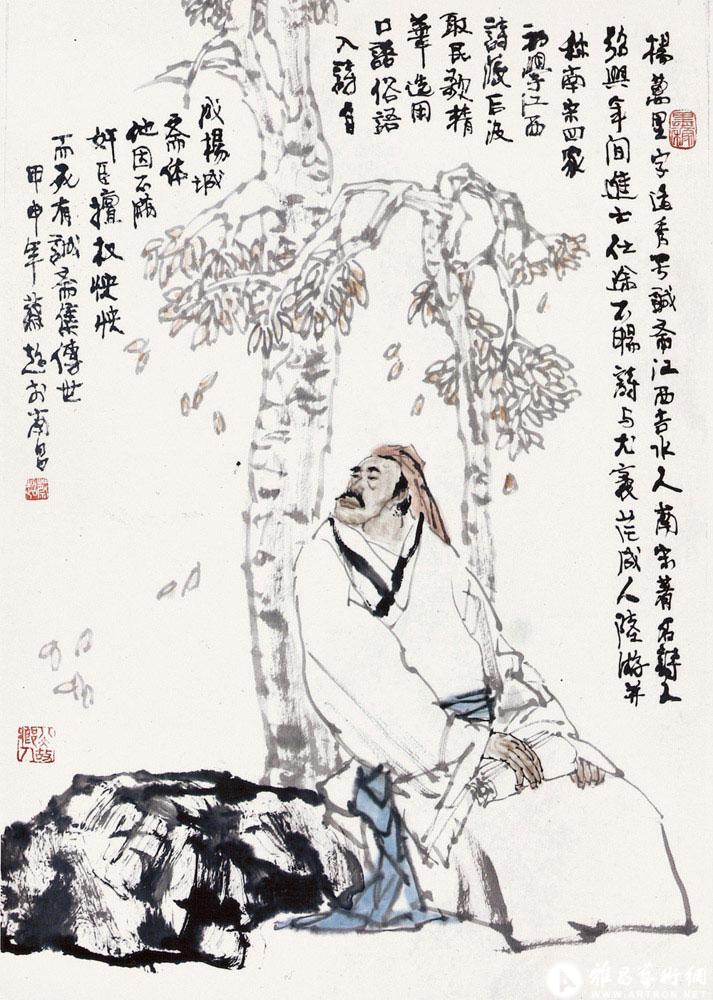 楊萬里字廷秀号誠斋江西吉水人南宋著名詩人
紹興年间進士仕途不暢詩与尤袤范成大陸游并
称南宋四家
初學江西
詩派后汲
取民歌精
華造用
口語俗語
入詩自
成楊城
斋体
他因不滿
奸臣擅权怏怏
而死有誠斋集傳世
甲申年蔡超於南昌
雅昌藝術網
WWW.ARTRON.NET